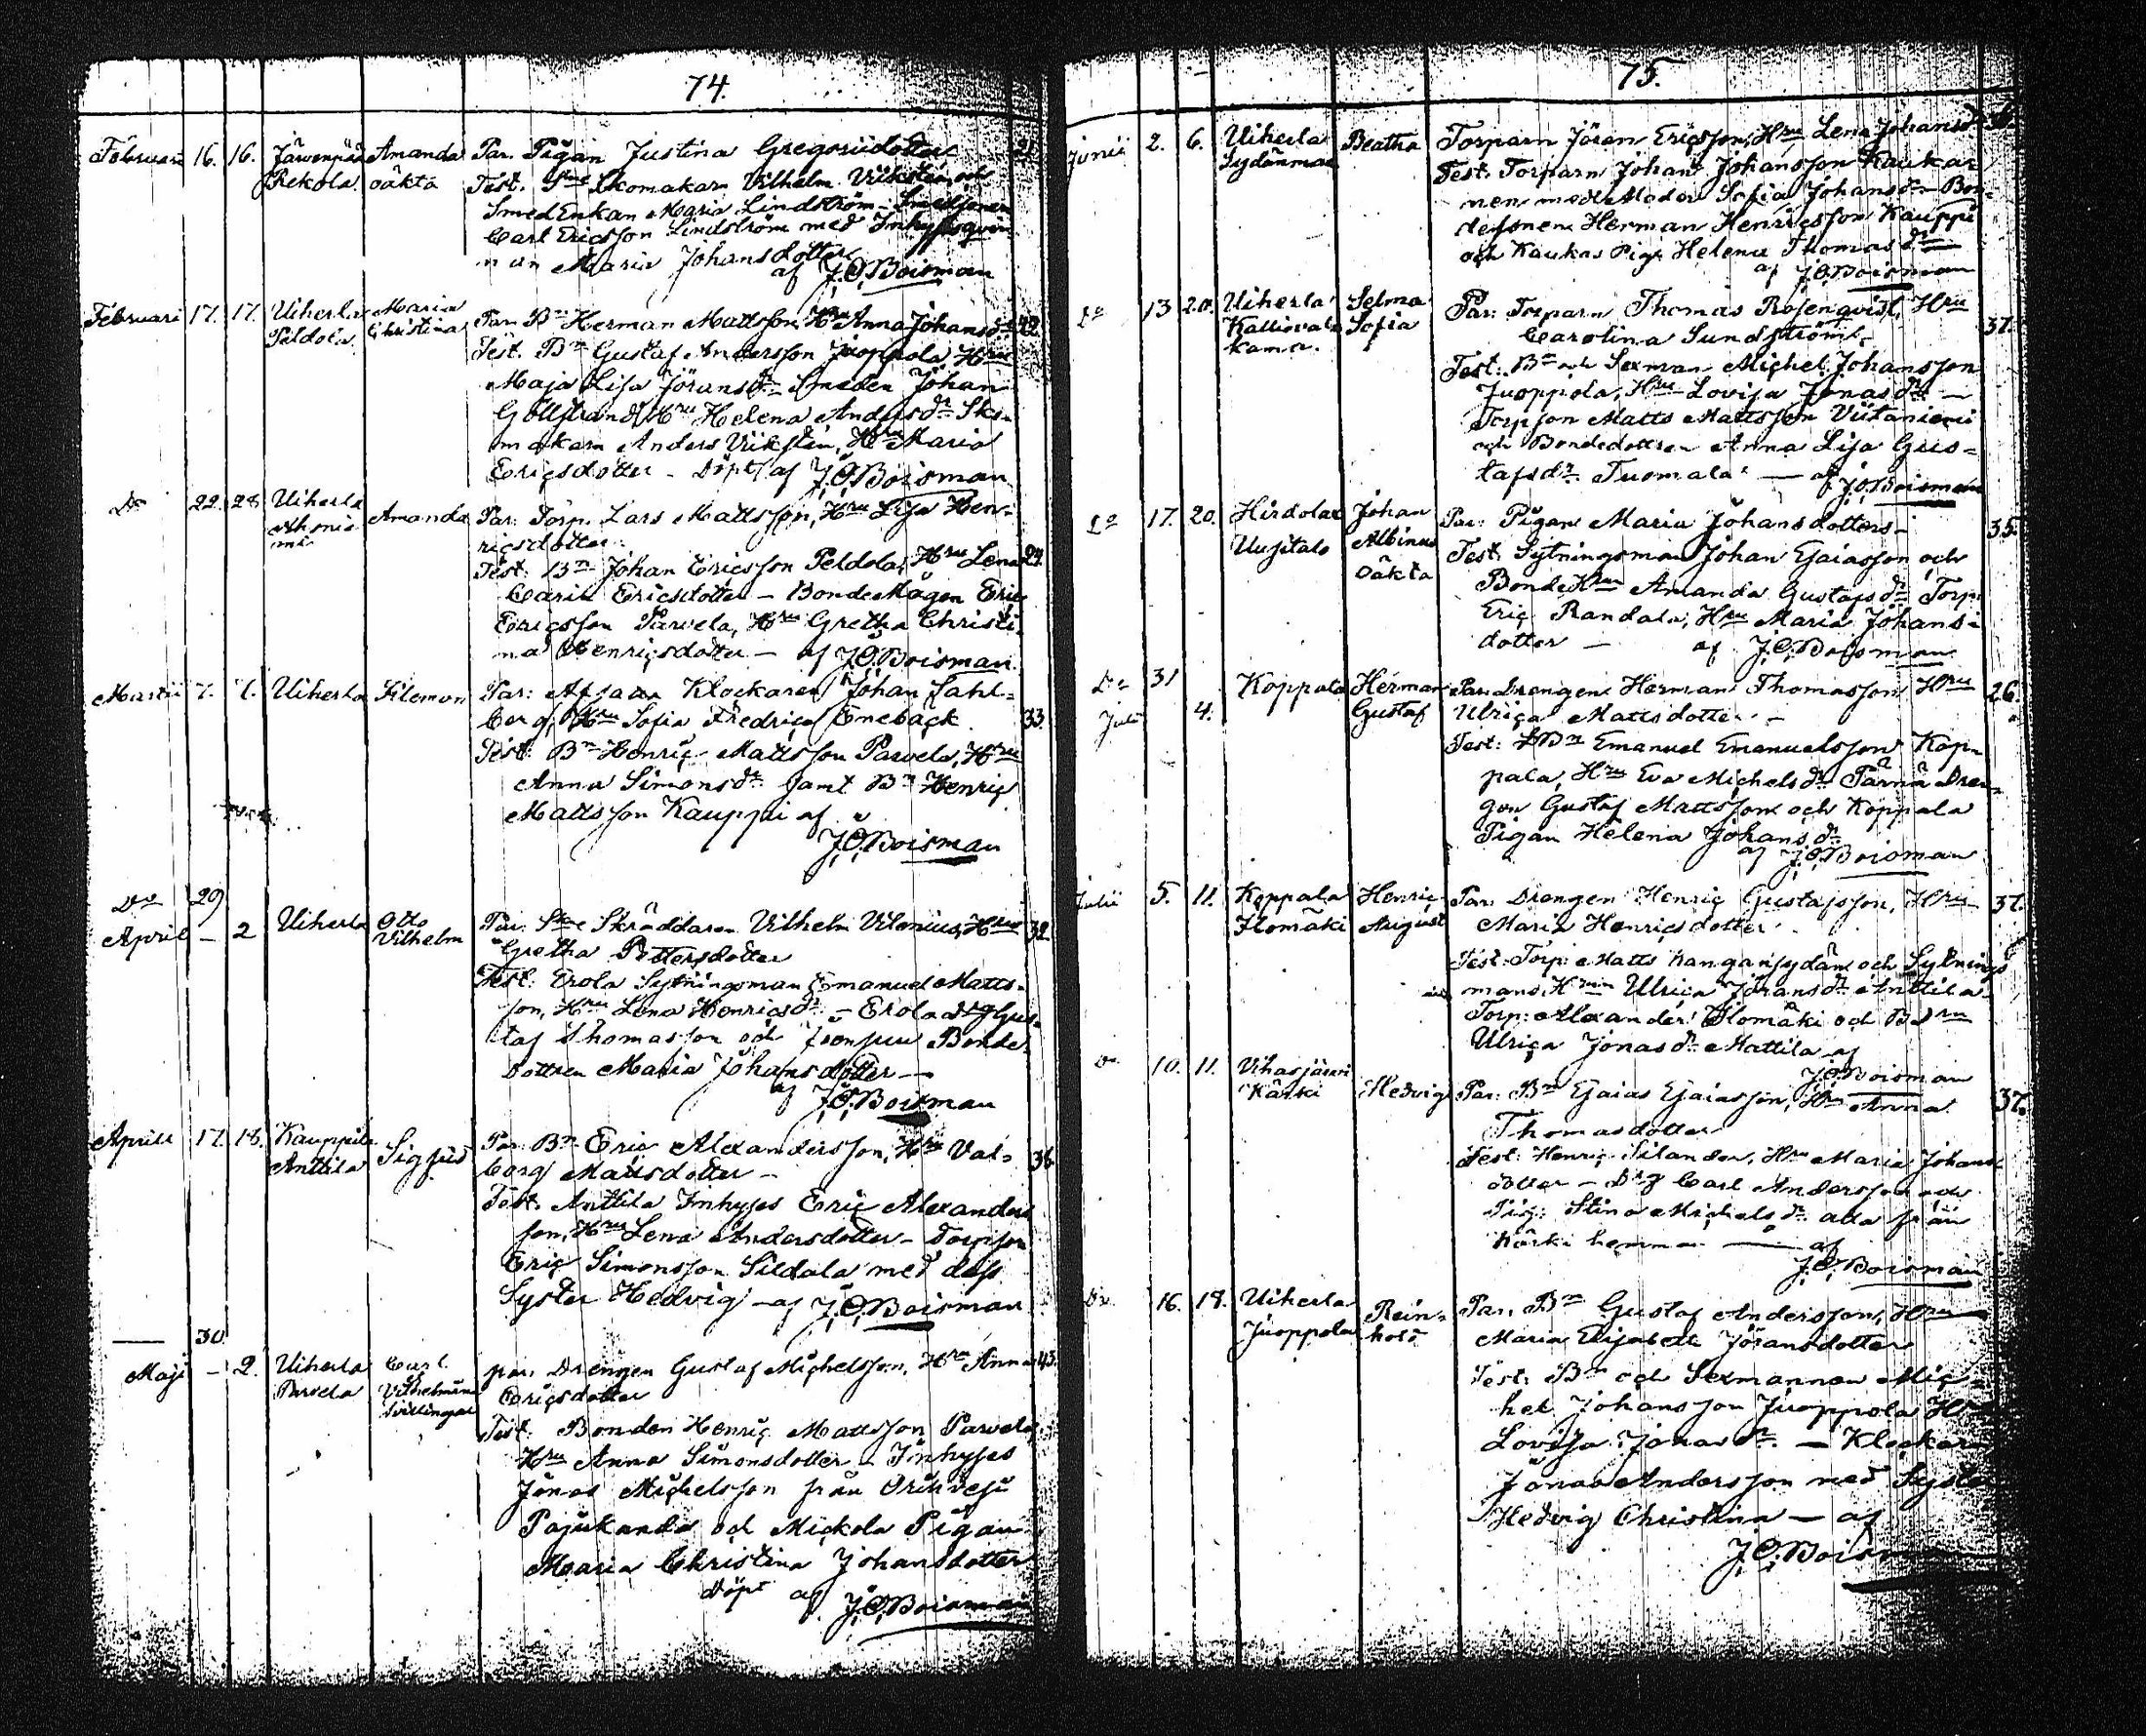 74.
Februari 16. 16. Järvenpää Amanda Par. Pigan Justina Gregoriidotter
Rekola oäkta Test. Skomakarn Vilhelm och
Smed Enkan Maria Lindström - Smedsonen
Carl Ericsson Lindström med Inhysesqvin-
nan Maria Johansdotter
af J.O. Boisman
Februari 17. 17. Uiherla Maria Par. Bn Herman Mattsson, Hru Anna Johansdr
Peldola Christina Test. Bn Gustaf Andersson Juoppola Hru
Maja Lisa Jöransdr Smeden Johan
Hru Helena Andersdr Sko-
makarn Anders Vikstén, Hru Maria
Ericsdotter - Döpt af J.O. Boisman
Do 22. 28 Uiherla Amanda Par: Torp. Lars Mattsson, Hru Lisa Hen-
ricsdotter
Test: Bn Johan Ericsson Peldola, Hru Lena
Carin Ericsdotter - Bonde Mågen Eric
Ericsson Parvela, Hru Gretha Christi-
na Henricsdotter - af J.O. Boisman
Martii 7. 7. Uiherla Filemon Par: Afsatta Klockaren Johan Sahl-
berg, Hru Sofia Fredrica Enebäck 33.
Test: Bn Henric Mattsson Parvela, Hru
Anna Simonsdr samt Bn Henric
Mattsson Kauppi af
J.O. Boisman
Do 29
April - 2 Uiherla Otto Par. Skräddaren Vilhelm Vilenius, Hru 32
Vilhelm Gretha Pettersdotter
Test: Erola Sytningsman Emanuel Matts-
son, Hru Lena Henricsdr - Erola drg Gus-
taf Thomasson och Bonde-
dottren Maria Johansdotter -
af J.O. Boisman
April 17. 18. Kauppila Sigfrid Par Bn Eric Alexandersson, Hru Val-
Anttila borg Mattsdotter -
Test. Anttila Inhyses Eric Alexanders
son, Hru Lena Andersdotter - Torpson
Eric Simonsson Sildala med dess
Syster Hedvig - af J.O. Boisman
30
Maji - 2. Uiherla Carl par. Drengen Gustaf Michelsson, Hru Anna 43.
Parvela Vilhelmina Ericsdotter
Tvillingar
Test. Bonden Henric Mattsson Parvela,
Hru Anna Simonsdotter - Inhyses
Jonas Michelsson från Orihvesi
Pajukanda och Mickola Pigan
Maria Christina Johansdotter
döpt af J.O. Boisman
75.
Junii 2. 6. Uiherla Beatha Torparn Jöran Ericsson, Hru Lena Johansdr
Sydänmaa Test: Torparn Johan Johansson Kaukas
nen med Modern Sofia Johansdr - Bon-
desonen Herman Henricsson Kauppi
och Kaukas Piga Helena Thomasdr
af J.O. Boisman
Do 13 20. Uiherla Selma Par: Torparn Thomas Rosenqvist, Hru 37.
Sofia Carolina Sundström.
Test: Bn och Sexman Michel Johansson
Juoppola, Hru Lovisa Jonasdr -
Torpson Matts Mattsson Viitaniemi
och Bondedottren Anna Lisa Gus-
tafsdr Tuomala - af J.O. Boisman
Do 17. 20. Hirdolax Johan Par: Pigan Maria Johansdotter - 35.
Uusitalo Albinus Test: Sytningsman Johan Esaiasson och
oäkta Bonde Hru Amanda Gustafsdr Torp.
Eric Randala, Hru Maria Johans-
dotter - af J.O. Boisman
Do 31 Koppala Herman Par. Drengen Herman Thomasson, Hru 26.
Juli 4. Gustaf Ulrica Mattsdotter -
Test: Bn Emanuel Emanuelsson Kop-
pala, Hru Eva Michelsdr Pärnä Dren-
gen Gustaf Mattsson och Koppala
Pigan Helena Johansdr
af J.O. Boisman
Julii 5. 11. Koppala Henric Par. Drengen Henric Gustafsson, Hru 37.
Ilomäki August Maria Henricsdotter
Test: Torp: Matts Kangansydän och Sytnings
mans Hru Ulrica Johansdr Anttila
Torp. Alexander Ilomäki och
Ulrica Jonasdr Mattila af
J.O. Boisman
Do 10. 11. Vihasjärvi Hedvig Par: Bn Esaias Esaiasson, Hru Anna 37.
Kärki Thomasdotter
Test: Henric Silander, Hru Maria Johans-
dotter - Drg Carl Andersson och
Pig: Stina Michelsdr alla från
Kärki hemman - af
J.O. Boisman
Do 16. 18. Uiherla Rein- Par. Bn Gustaf Andersson, Hru
Juoppola hold Maria Elisabeth Jöransdotter
Test: Bn och Sexmannen Mic-
hel Johansson Juoppola Hru
Lovisa Jonasdr - Klockarn
Jonas Andersson med Syster
Hedvig Christina - af
J.O. Boisman